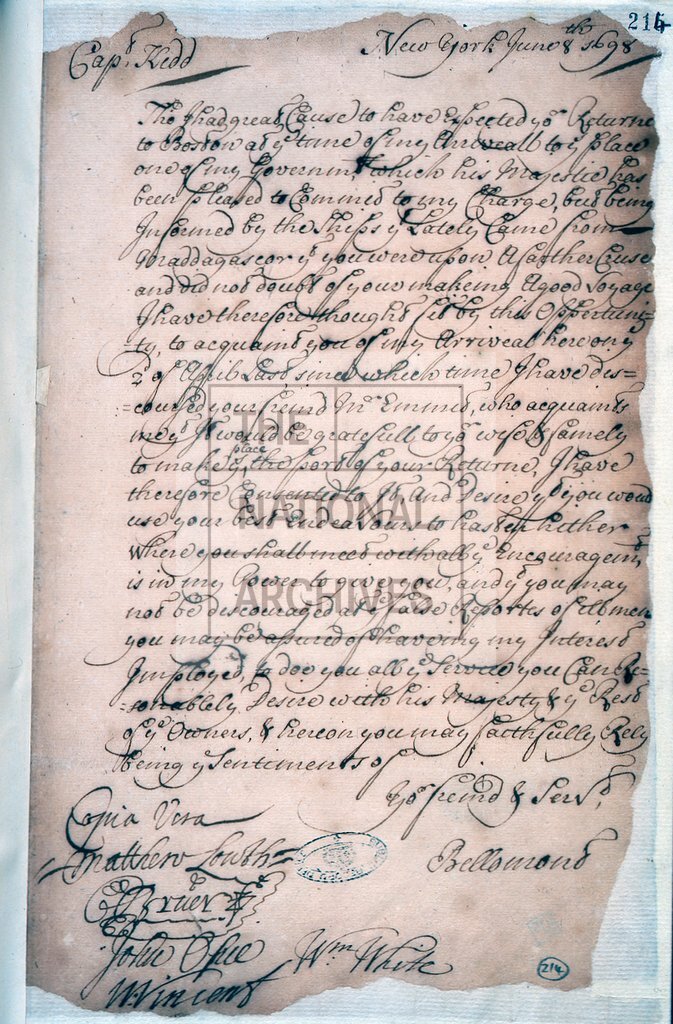 214
Cap.t Kidd New York June 8th 1698
Tho I had great Cause to have Expected yor Returne
to Boston at ye time of my Arriveall to ye place
one of my Governmts which his Majestie has
been pleased to Committ to my Charge, but being
Informed by the Ships yt Lately Came from
Maddagascor yt you were upon A farther Cruse
and did not doubt of your makeing A good Voyage
I have therefore thought fit by this Oppertuni=
=ty, to acquaint you of my Arriveal here on ye
2d of April Last since which time I have dis=
=coursed your freind Mr Emmit, who acquaints
me yt It would be gratefull to yor wife & famely
to make ys place the port of your Returne, I have
therefore Consented to It and Desire yt you would
use your best Endeavours to hasten hither
where you shall meet with all ye Encouragemt
is in my Power to give you, and yt you may
not be discouraged at false Reportes of ill men
you may be assured of haveing my Interest
Imployed, to doe you all ye Service you Can Re=
=sonablely Desire with his Majesty & ye Rest
of ye Owners, & hereon you may faithfully Rely
being ye Sentiments of
Yor freind & Servt
Copia Vera
Bellomont
Matthew Louth
John Opie Wm White
W. Vincent
214
THE
NATIONAL
ARCHIVES